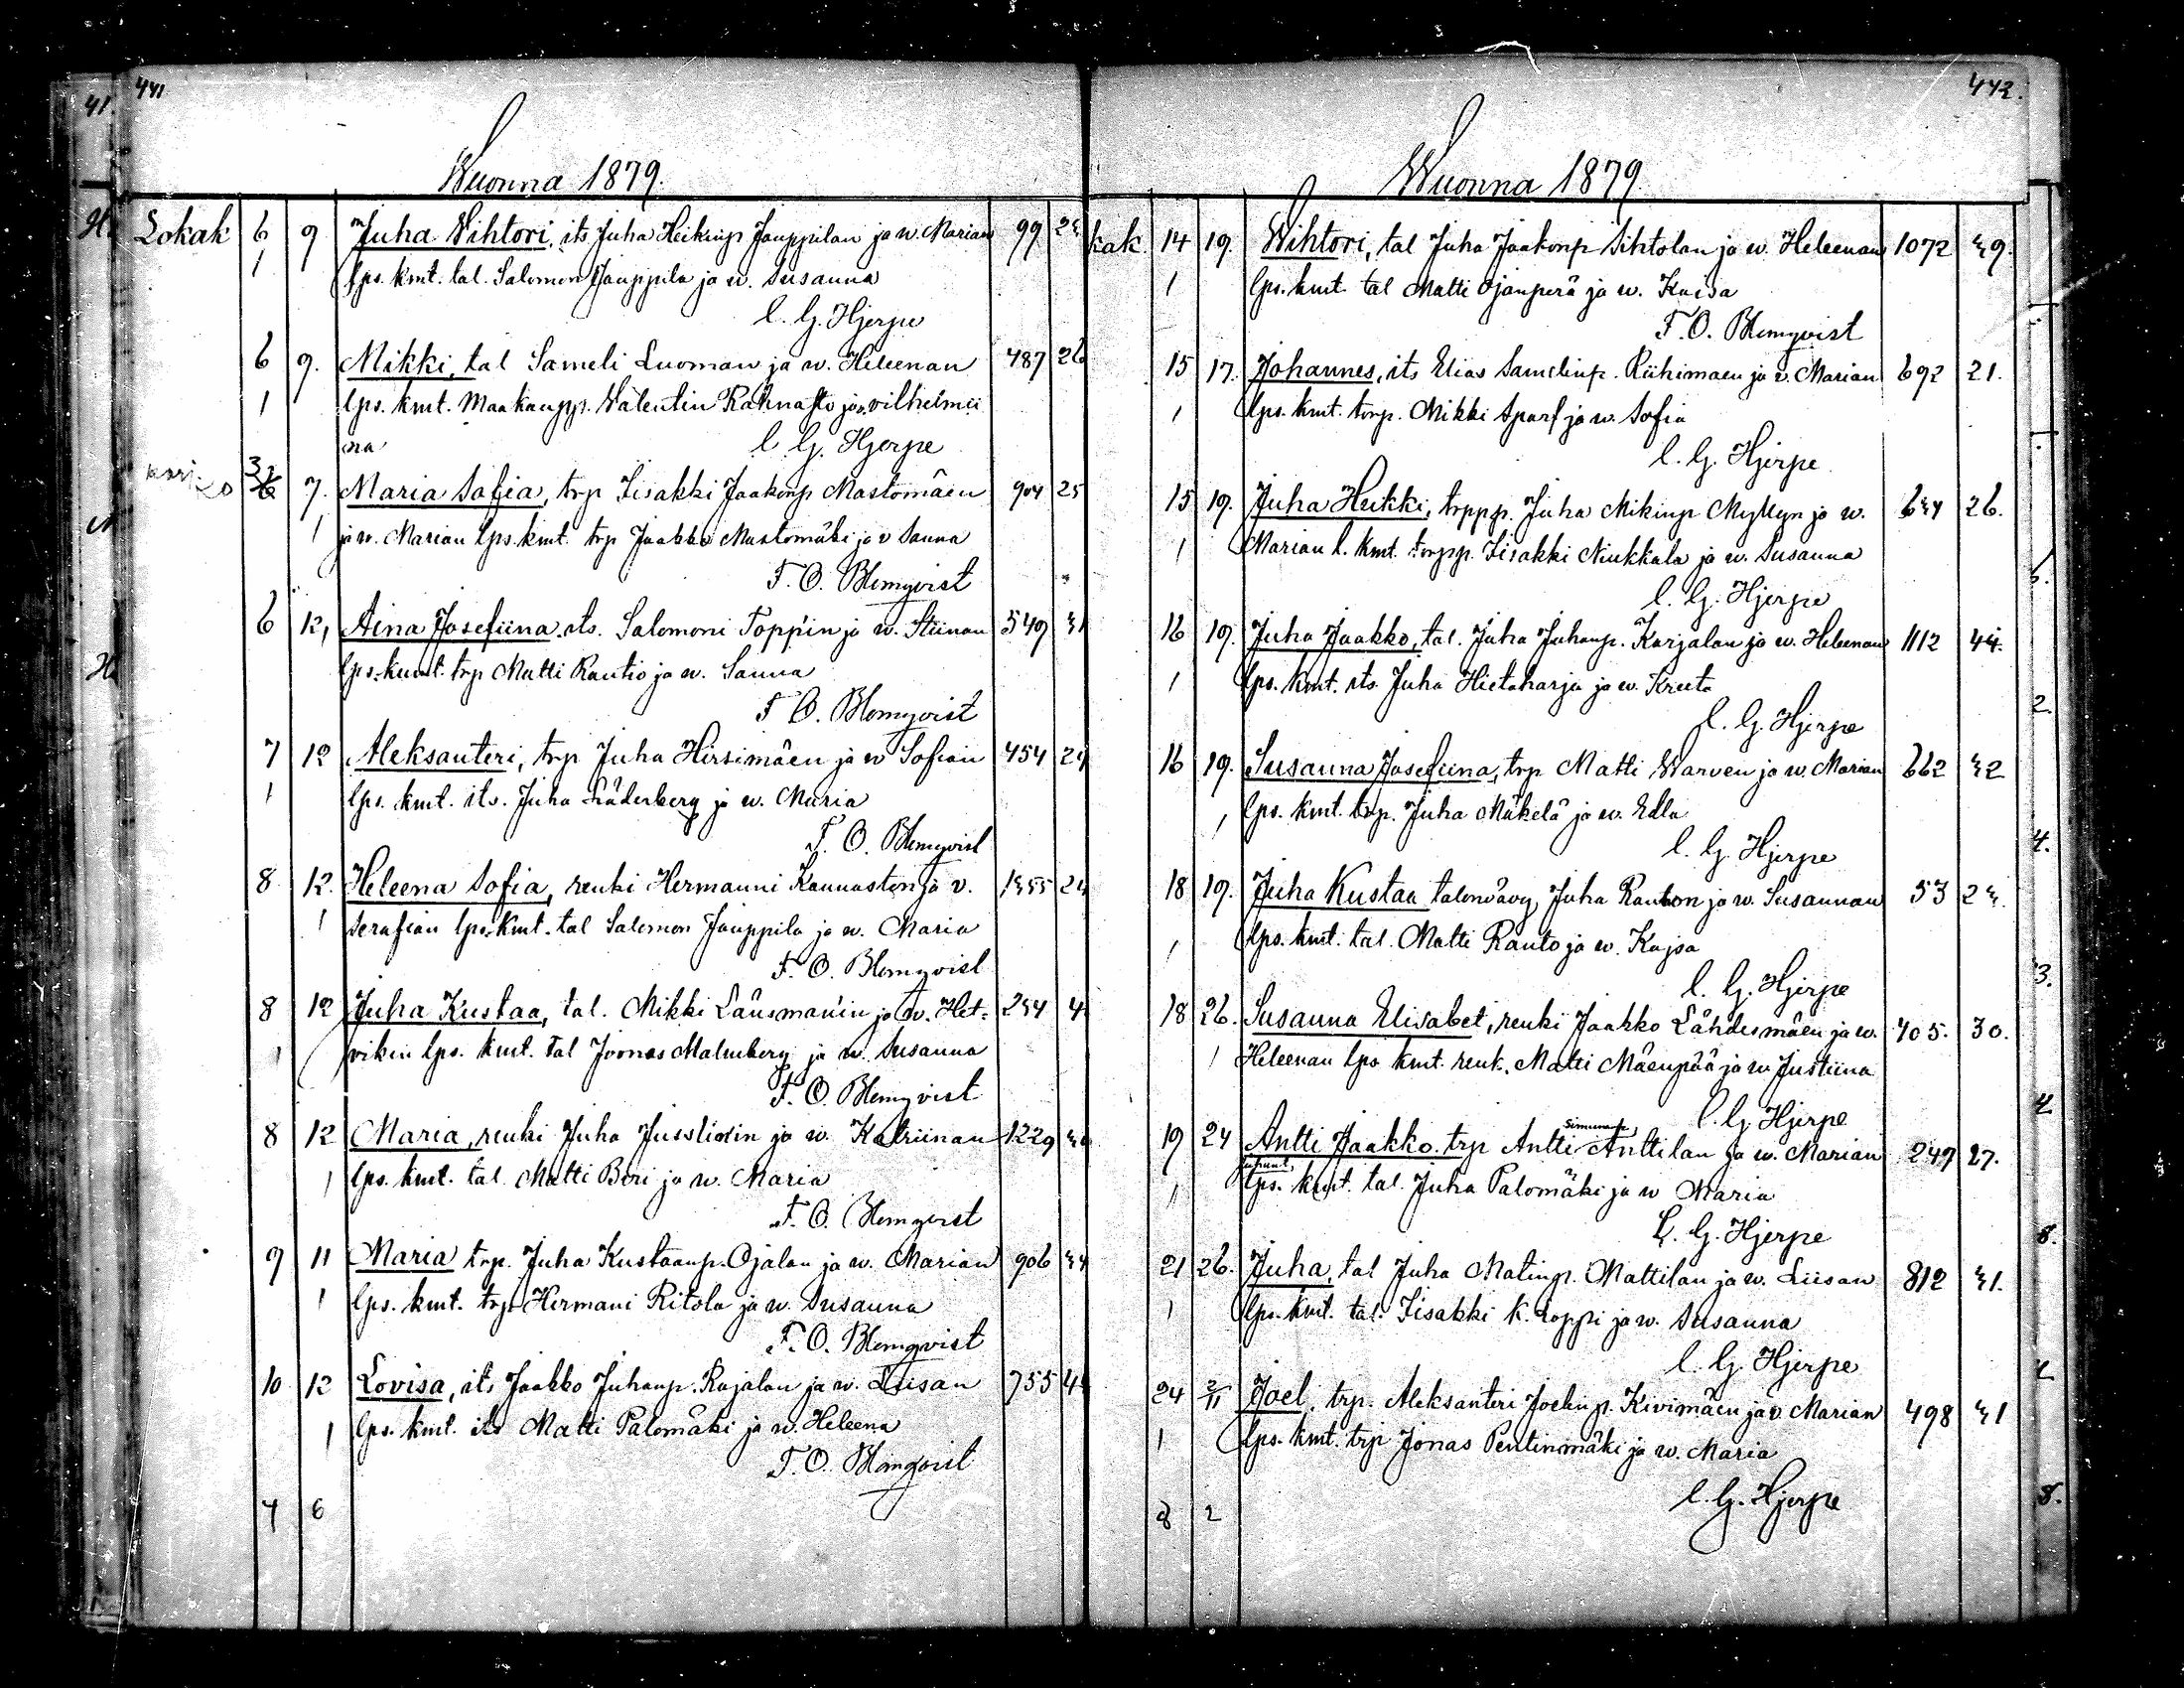 441
Wuonna 1879.
Lokak 6 9 Juha Wihtori, its Juha Heikinp Jauppilan ja w. Marian 99
1 lps. kmt. tal. Salomon Jauppila ja w. Susanna
C. G. Hjerpe
6 9. Mikki, tal Sameli Luoman ja w. Heleenan 487 26
1 lps. kmt. Maakaupp. Valentin Rahnasto ja w. vilhelmii
na C. G. Hjerpe
7. Maria Sofia, trp Iisakki Jaakonp Mastomäen 904 25
1 ja w. Marian lps. kmt. trp Jaakko Mastomäki ja v Sanna
F. O. Blomqvist
6 12, Aina Josefiina. its. Salomoni Toppin ja w. Stiinan 549 31
lps. kmt. trp Matti Rautio ja w. Sanna
F. O. Blomqvist
7 12 Aleksanteri, trp Juha Hirsimäen ja w Sofian 454 24
1 lps. kmt. its. Juha Söderberg ja w. Maria
F. O. Blomqvist
8 12. Heleena Sofia, renki Hermanni Kannaston ja v. 1355 24
1 Serafian lps. kmt. tal Salomon Jauppila ja w. Maria
F. O. Blomqvist
8 12 Juha Kustaa, tal. Mikki Länsman'in ja w. Het= 234 4
1 vikin lps. kmt. tal Joonas Malmberg ja w. Susanna
F. O. Blomqvist
8 12 Maria, renki Juha Jusslidin ja w. Katriinan 1229
1 lps. kmt. tal. Matti Bori ja w. Maria
F. O. Blomqvist
9 11 Maria trp. Juha Kustaanp. Ojalan ja w. Marian 906 34
1 lps. kmt. trp Hermani Ritola ja w. Susanna
F. O. Blomqvist
10 12 Lovisa, its Jaakko Juhanp. Rajalan ja w. Liisan 755
1 lps. kmt. its Matti Palomäki ja w. Heleena
F. O. Blomqvist
4 6
442.
Wuonna 1879.
kak 14 19. Wihtori, tal Juha Jaakonp Sihtolan ja w. Heleenan 1072 39.
1 lps. kmt. tal Matti Ojanperä ja w. Kaisa
F. O. Blomqvist
15 17. Johannes, its Elias Samelinp. Riihimaen ja v. Marian 692 21.
1 lps. kmt. torp. Mikki Sparf ja w. Sofia
C. G. Hjerpe
15 19. Juha Heikki, trppp. Juha Mikinp Myllyn ja w. 634 26.
1 Marian l. kmt. torpp. Iisakki Niukkala ja w. Susanna
C. G. Hjerpe
16 19. Juha Jaakko, tal. Juha Juhanp. Karjalan ja w. Heleenan 1112 44.
1 lps. kmt. its Juha Hietaharju ja w. Kreeta
C. G. Hjerpe
16 19. Susanna Josefiina, trp Matti Warven ja w. Marian 662 32
1 lps. kmt. trp. Juha Mäkelä ja w. Edla
C. G. Hjerpe
18 19. Juha Kustaa talonvävy Juha Rauton ja w. Susannan 53 23.
1 lps. kmt. tal. Matti Rauto ja w. Kajsa
C. G. Hjerpe
18 26. Susanna Elisabet, renki Jaakko Lähdesmäen ja w. 405. 30.
1 Heleenan lps kmt. renk. Matti Mäenpää ja w Justiina
C. G. Hjerpe
19 24 Antti Jaakko. trp Antti Simunap. Anttilan ja w. Marian 249 27.
1 lps. kmt. tal. Juha Palomäki ja w Maria
C. G. Hjerpe
21 26. Juha, tal Juha Matinp. Mattilan ja w. Liisan 812 31.
1 lps. kmt. tal. Iisakki K. Loppi ja w. Susanna
C. G. Hjerpe
24 2/11 Joel, trp. Aleksanteri Joelinp. Kivimäen ja v. Marian 498 31
1 lps. kmt. trp Jonas Pentinmäki ja w. Maria
C. G. Hjerpe
8 2